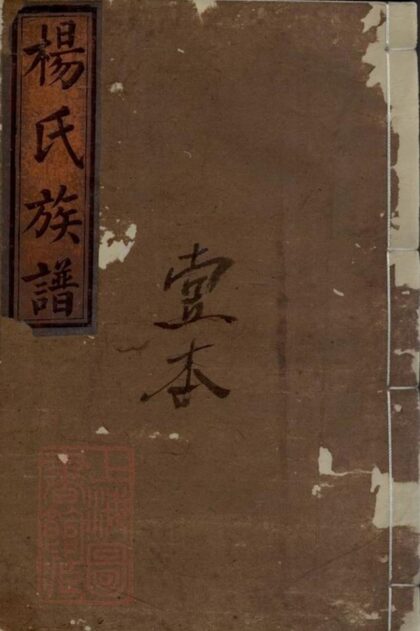 楊氏族譜
壹本